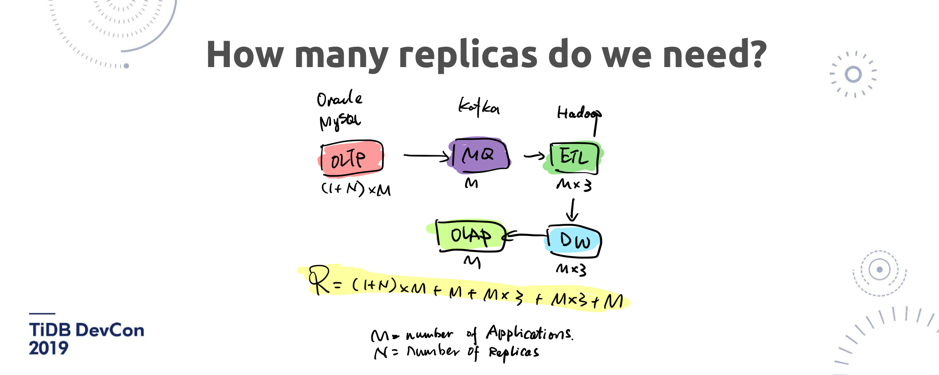 How many replicas do we need?
Oracle
MySQL
Kafka
Hadoop
OLTP
MQ
ETL
(1+N)×M
M
M×3
OLAP
DW
M
M×3
R = (1+N)×M + M + M×3 + M×3 + M
M = number of Applications.
N = Number of Replicas
TiDB DevCon
2019